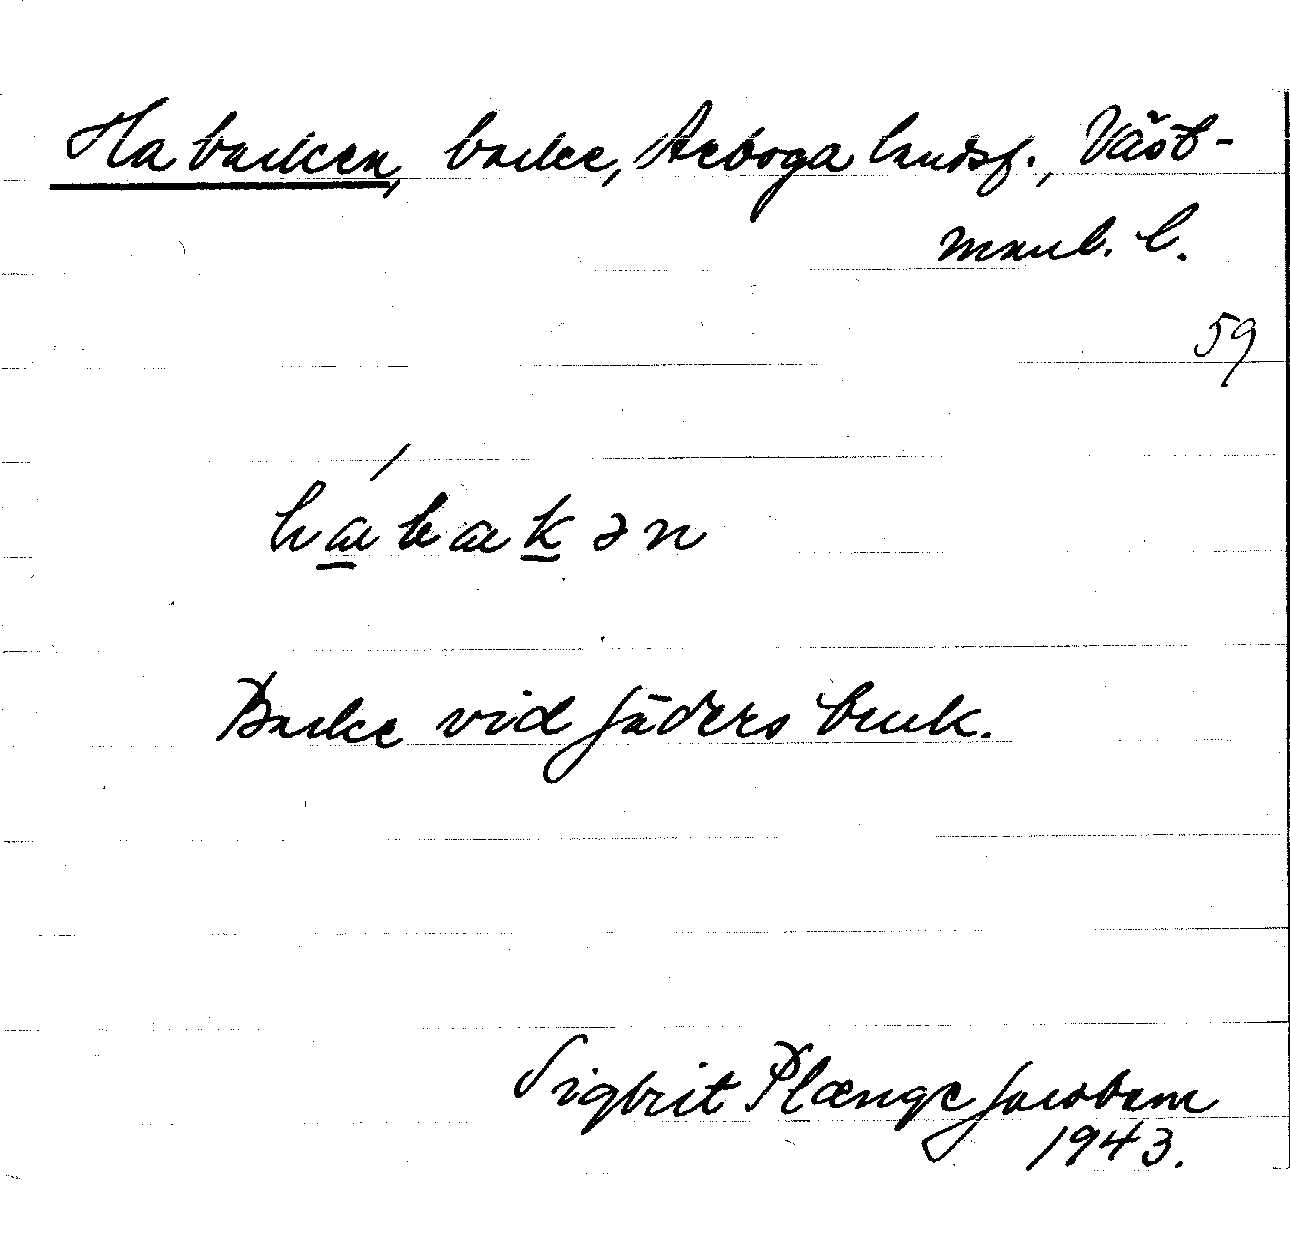 Habacken, backe, Arboga landsf., Väst-
manl. l.
59
hábakən
Backe vid Jäders bruk.
Sigbrit Plænge Jacobson
1943.